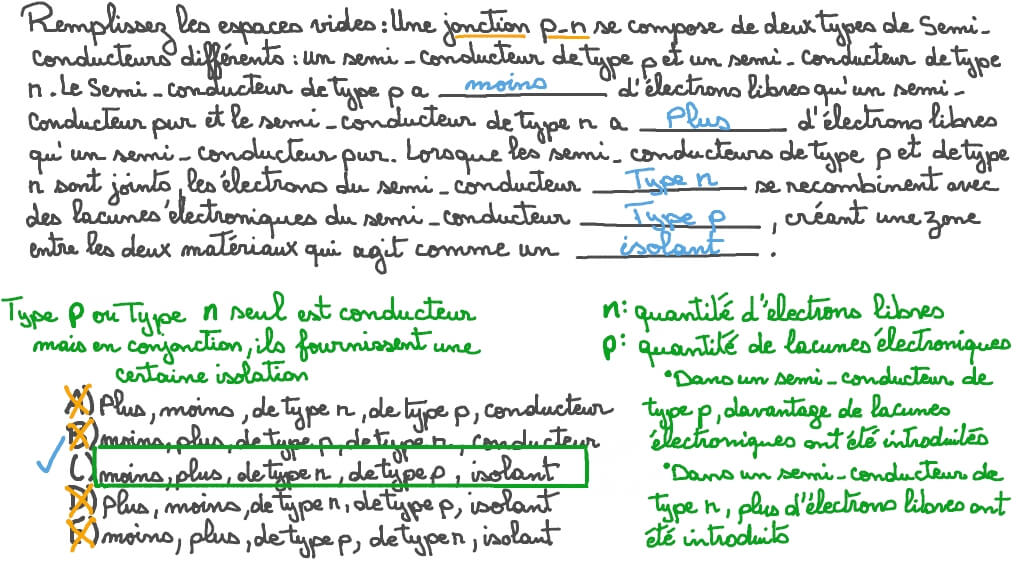 Remplissez les espaces vides : Une jonction p-n se compose de deux types de Semi-
conducteurs différents : un semi-conducteur de type p et un semi-conducteur de type
n. Le Semi-conducteur de type p a moins d'électrons libres qu'un semi-
conducteur pur et le semi-conducteur de type n a Plus d'électrons libres
qu'un semi-conducteur pur. Lorsque les semi-conducteurs de type p et de type
n sont joints, les électrons du semi-conducteur Type n se recombinent avec
des lacunes électroniques du semi-conducteur Type p, créant une zone
entre les deux matériaux qui agit comme un isolant.
Type p ou Type n seul est conducteur
mais en conjonction, ils fournissent une
certaine isolation
A) Plus, moins, de type n, de type p, conducteur
B) moins, plus, de type p, de type n, conducteur
C) moins, plus, de type n, de type p, isolant
D) Plus, moins, de type n, de type p, isolant
E) moins, plus, de type p, de type n, isolant
n: quantité d'électrons libres
p: quantité de lacunes électroniques
•Dans un semi-conducteur de
type p, davantage de lacunes
électroniques ont été introduites
•Dans un semi-conducteur de
type n, plus d'électrons libres ont
été introduits